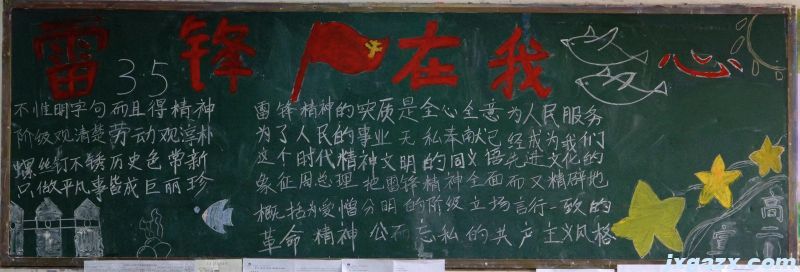 雷锋在我心
3.5
不惟明字句而且得精神
阶级观清楚劳动观淳朴
螺丝钉不锈历史色常新
只做平凡事皆成巨丽珍
雷锋精神的实质是全心全意为人民服务
为了人民的事业无私奉献已经成为我们
这个时代精神文明的同义语先进文化的
象征周总理把雷锋精神全面而又精辟地
概括为爱憎分明的阶级立场言行一致的
革命精神公而忘私的共产主义风格
高二
jxgazx.com